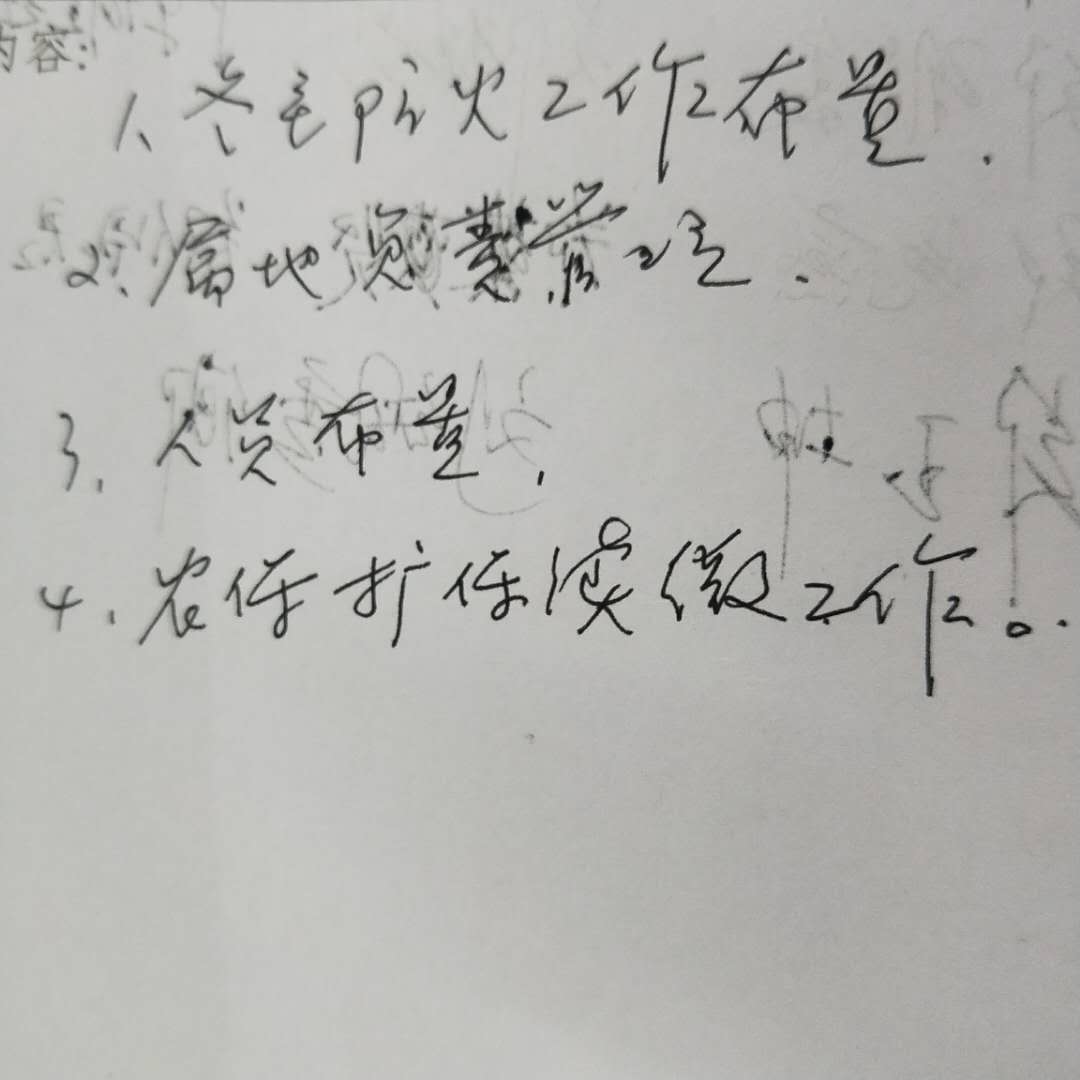 内容:
1、冬季防火工作布置.
2、属地负责管理.
3、人员布置,
4、农保扩保续缴工作。